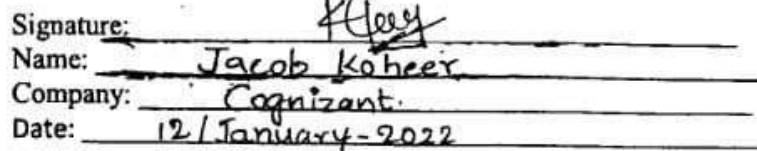 Signature:
Name: Jacob Koheer
Company: Cognizant.
Date: 12/January-2022